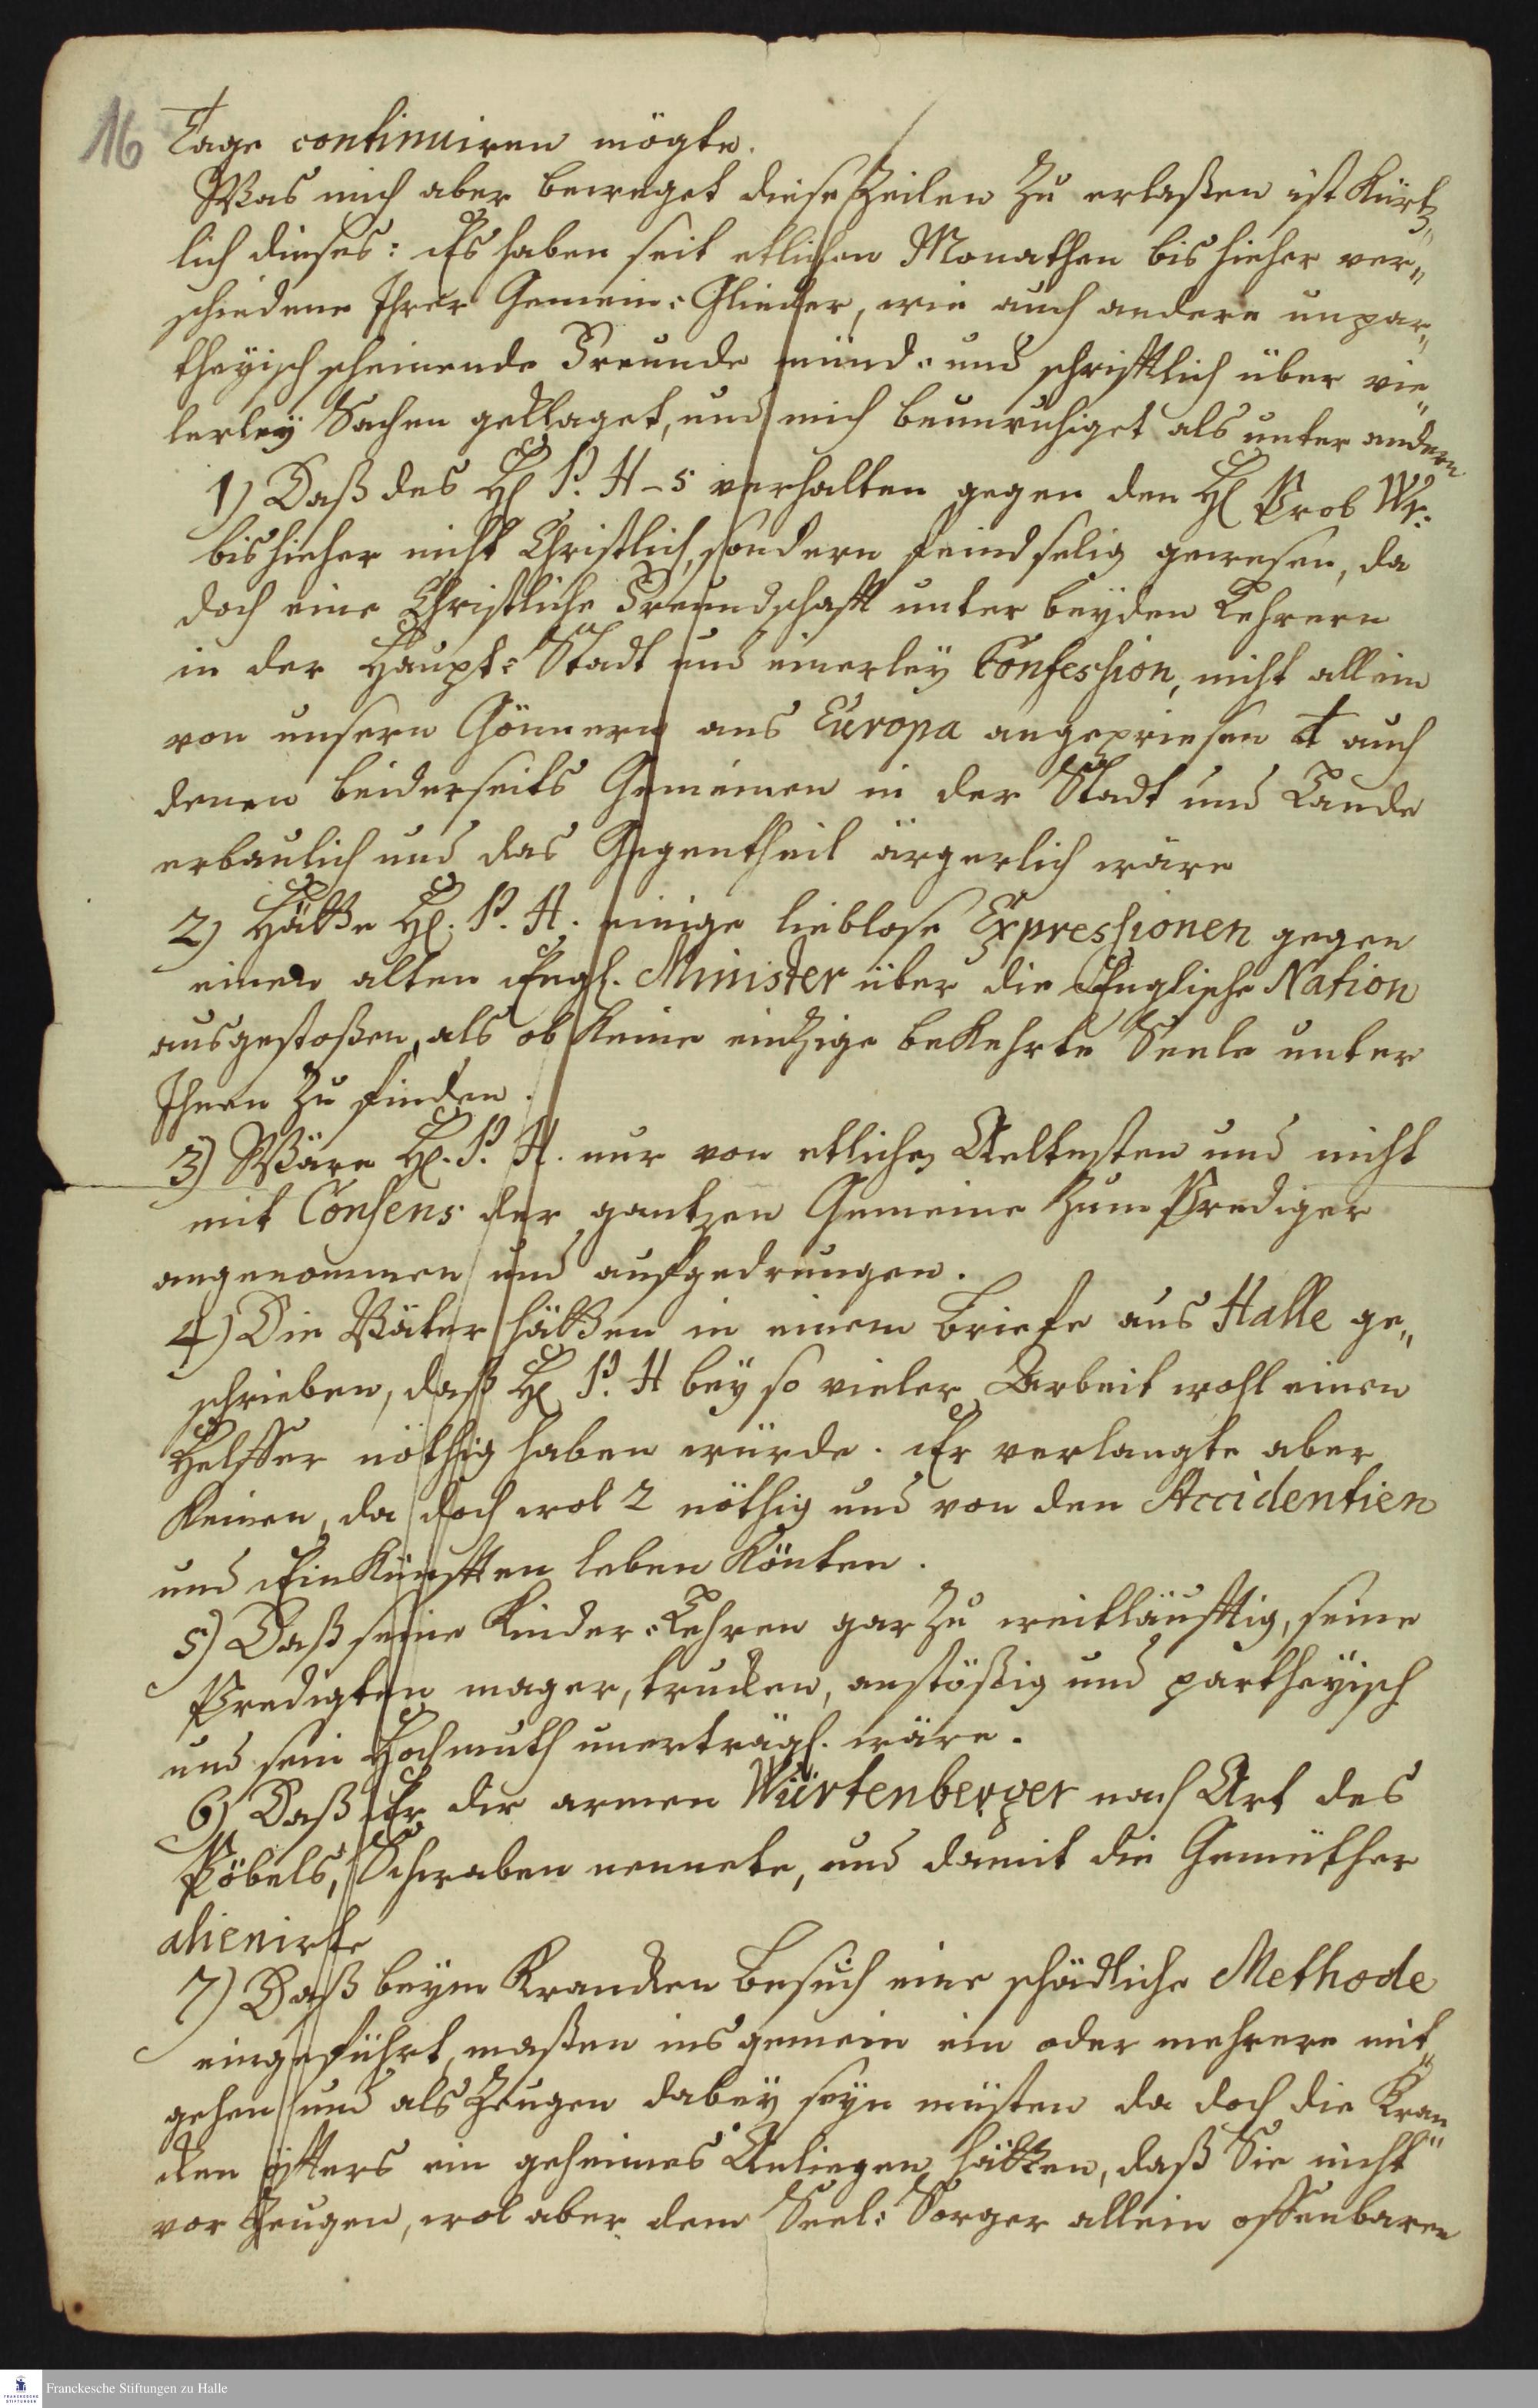 16
Tage continuiren mögte.
Was mich aber beweget diese Zeilen zu erlaßen ist kürtz„
lich dieses: Es haben seit etlichen Monathen bis hieher ver„
schiedene Ihrer Gemein-Glieder, wie auch andere unpar„
theyisch scheinende Freunde münd- und schrifftlich über vie„
lerley Sachen geklaget, und mich beunruhiget als unter andern
1) Daß des H. P. H–s verhalten gegen den H. Prob Wr:
bishieher nicht Christlich, sondern feindselig gewesen, da
doch eine Christliche Freundschafft unter beyden Lehrern
in der Haupt-Stadt und einerley Confession, nicht allein
von unsern Gönnern aus Europa angepriesen auch
denen beiderseits Gemeinen in der Stadt und Lande
erbaulich und das Gegentheil ärgerlich wäre
2) Hätte H. P. H. einige lieblose Expressionen gegen
einen alten Engl. Minister über die Englische Nation
ausgestoßen, als ob keine eintzige bekehrte Seele unter
Ihnen zu finden.
3) Wäre H. P. H. nur von etlichen Aeltesten und nicht
mit Consens der gantzen Gemeine zum Prediger
angenommen und aufgedrungen.
4) Die Väter hätten in einem Briefe aus Halle ge„
schrieben, daß H. P. H bey so vieler Arbeit wohl einen
Helffer nöthig haben würde. Er verlangte aber
keinen, da doch wol 2 nöthig und von den Accidentien
und Einkünfften leben könten.
5) Daß seine Kinder-Lehren gar zu weitläufftig, seine
Predigten mager, trucken, anstößig und partheyisch
und sein Hochmuth unerträgl. wäre.
6) Daß Er die armen Würtenberger nach Art des
Pöbels, Schwaben nennete, und damit die Gemüther
alienirte
7) Daß beym Krancken Besuch eine schädliche Methode
eingeführt, maßen ins gemein ein oder mehrere mit„
gehen und als Zeugen dabey seyn müsten da doch die Kran„
cken öffters ein geheimes Anliegen hätten, daß Sie nicht
vor Zeugen, wol aber dem Seel-Sorger allein offenbaren
Franckesche Stiftungen zu Halle